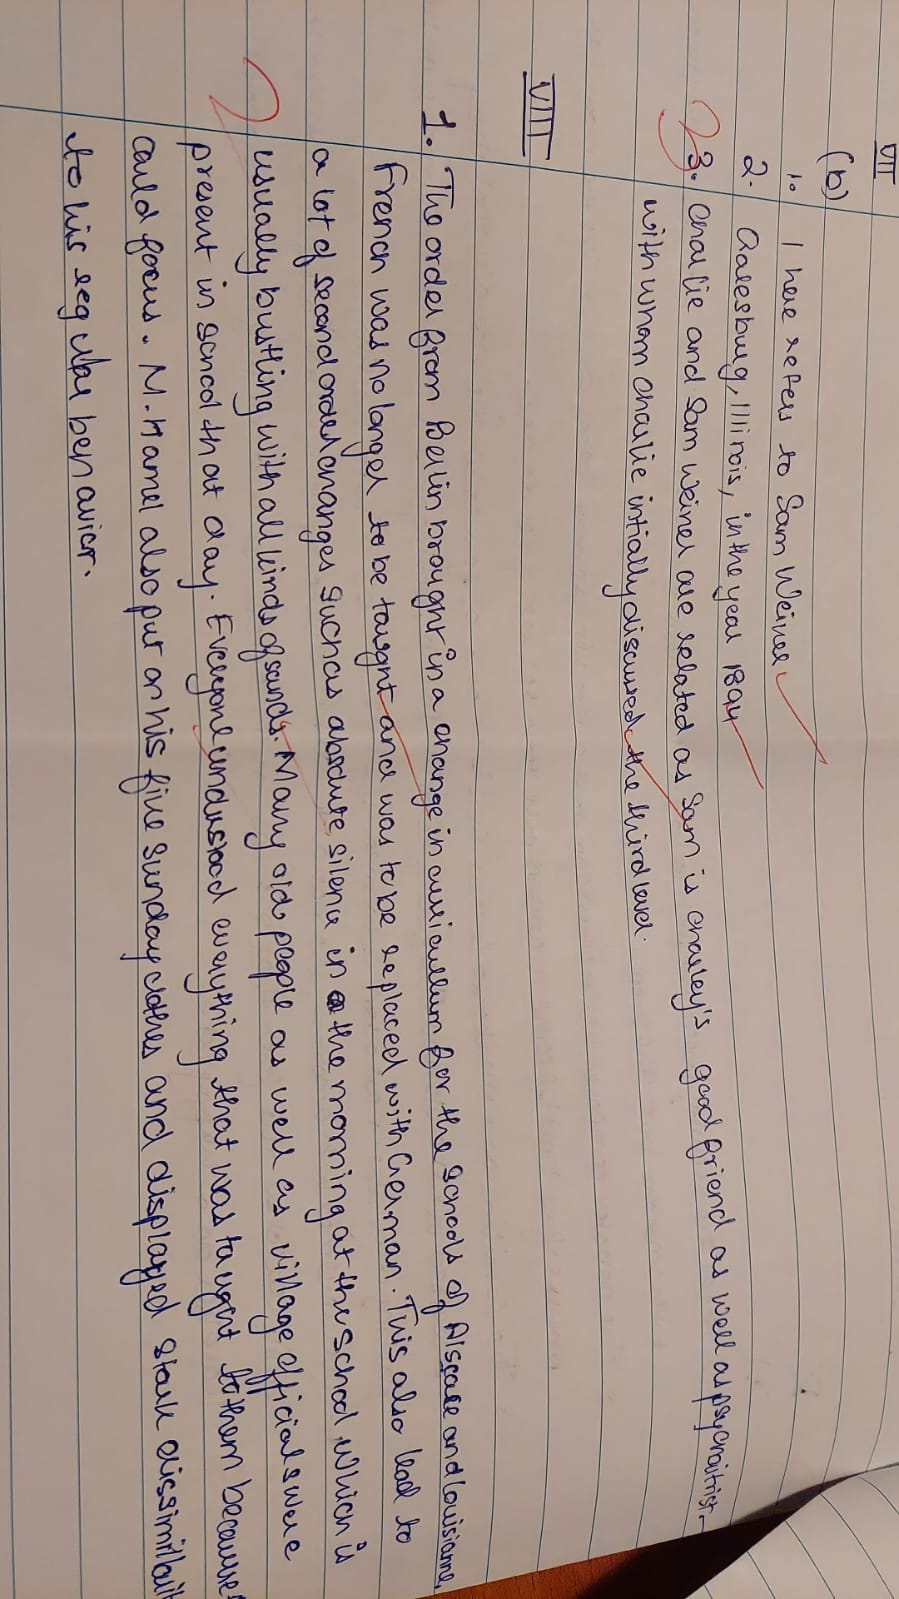 VII
(b)
1. I here refers to Sam Weiner
2. Galesburg, Illinois, in the year 1894
3. Charlie and Sam Weiner are related as Sam is charley's good friend as well as psychaitrist.
with whom Charlie intially discussed the third level.
VIII
1. The order from Berlin brought in a change in curricullum for the schools of Alscase and Louisianne,
French was no longer to be taught and was to be replaced with German. This also lead to
a lot of second order changes such as absolute silence in the morning at the school which is
usually bustling with all kinds of sounds. Many old people as well as village officials were
present in school that day. Everyone understood everything that was taught to them because
could focus. M. Hamel also put on his fine sunday clothes and displayed stark
to his regular behavior.
2
2